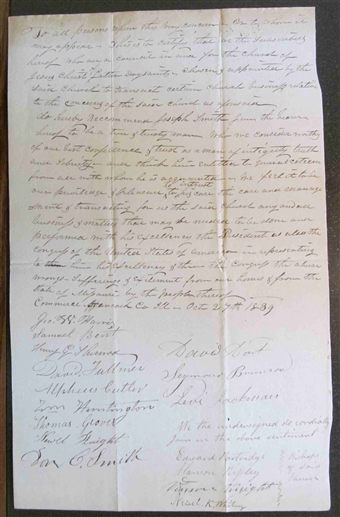 To all persons whom this may concern
may appear - This is to certify that we the subscribers
hereof who are a council in and for the Church of
Jesus Christ Latter Day Saints - chosen & appointed by the
said church to transact certain church business relative
to the concerns of the said church as
do hereby Recommend Joseph Smith Jun the bearer
hereof to be a true & trusty man Who we consider worthy
of our best Confidence & trust as a man of integrity truth
and Sobriety and think him entitled to general esteem
from all with whom he is We feel it to be
our privilege & pleasure to intrust to him over the care and manage
ment & transacting for us the said church any and all
business & matters that may be needed to be done and
performed with his Excellency the President as also the
congress of the United States of america in representing
to him his Excellency & them the Congress the abuse
wrongs Sufferings & Exilement from our homes & from the
State of Missouri by the
Commerce Hancock Co Ill - Oct 29th 1839
Geo W Harris
Samuel Bent
Henry G Sherwood
David Fullmer
Alpheus Cutler
Wm Huntington
Thomas Grover
Newel Knight
Don C. Smith
David Dort
Seymour Brunson
Levi Jackman
We the undersigned do cordially
Join in the above sentiment
Edward Partridge
Vinson Knight
Newel K Whitney
Bishops
of Said
Church